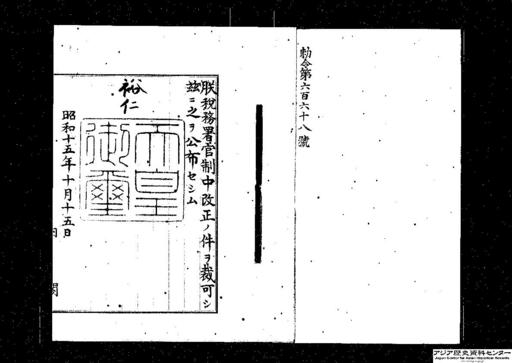 勅令第六百六十八號
朕税務署官制中改正ノ件ヲ裁可シ
玆ニ之ヲ公布セシム
裕仁
天皇
御璽
昭和十五年十月十五日
内閣
アジア歴史資料センター
Japan Center for Asian Historical Records